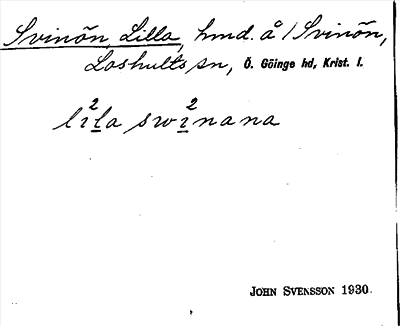 Svinön, Lilla, hmd. å / Svinön,
Loshults sn, Ö. Göinge hd, Krist. l.
li²la swi²nana
JOHN SVENSSON 1930.